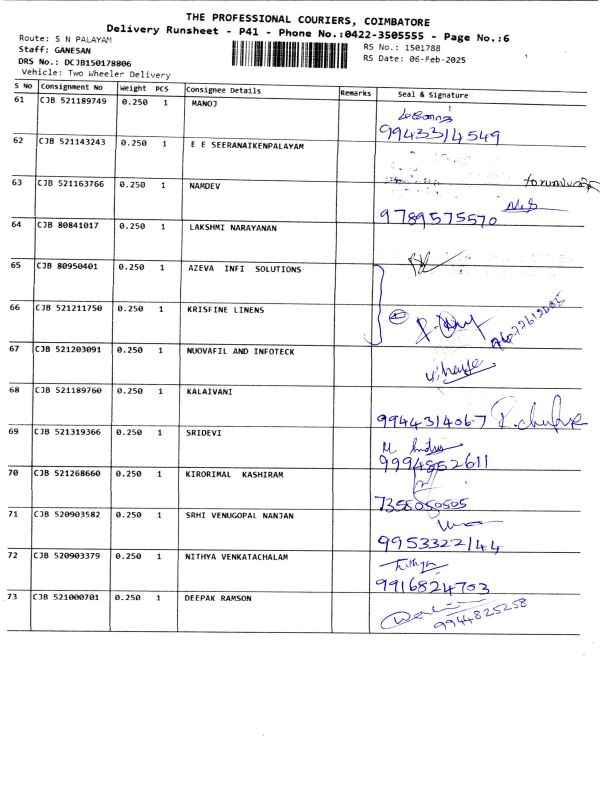 THE PROFESSIONAL COURIERS, COIMBATORE
Delivery Runsheet - P41 - Phone No.:0422-3505555 - Page No.:6
Route: S N PALAYAM
Staff: GANESAN
DRS No.: DCJB150178806
Vehicle: Two Wheeler Delivery
RS No.: 1501788
RS Date: 06-Feb-2025
S No Consignment No Weight PCS Consignee Details Remarks Seal & Signature
61 CJB 521189749 0.250 1 MANOJ
9943314549
62 CJB 521143243 0.250 1 E E SEERANAIKENPALAYAM
63 CJB 521163766 0.250 1 NAMDEV
9789575570
64 CJB 80841017 0.250 1 LAKSHMI NARAYANAN
65 CJB 80950401 0.250 1 AZEVA INFI SOLUTIONS
66 CJB 521211750 0.250 1 KRISFINE LINENS
67 CJB 521203091 0.250 1 NUOVAFIL AND INFOTECK
68 CJB 521189760 0.250 1 KALAIVANI
9944314067
69 CJB 521319366 0.250 1 SRIDEVI
9994852611
70 CJB 521268660 0.250 1 KIRORIMAL KASHIRAM
7358050505
71 CJB 520903582 0.250 1 SRHI VENUGOPAL NANJAN
9953322144
72 CJB 520903379 0.250 1 NITHYA VENKATACHALAM
Nithya
9916824703
73 CJB 521000701 0.250 1 DEEPAK RAMSON
9944825258